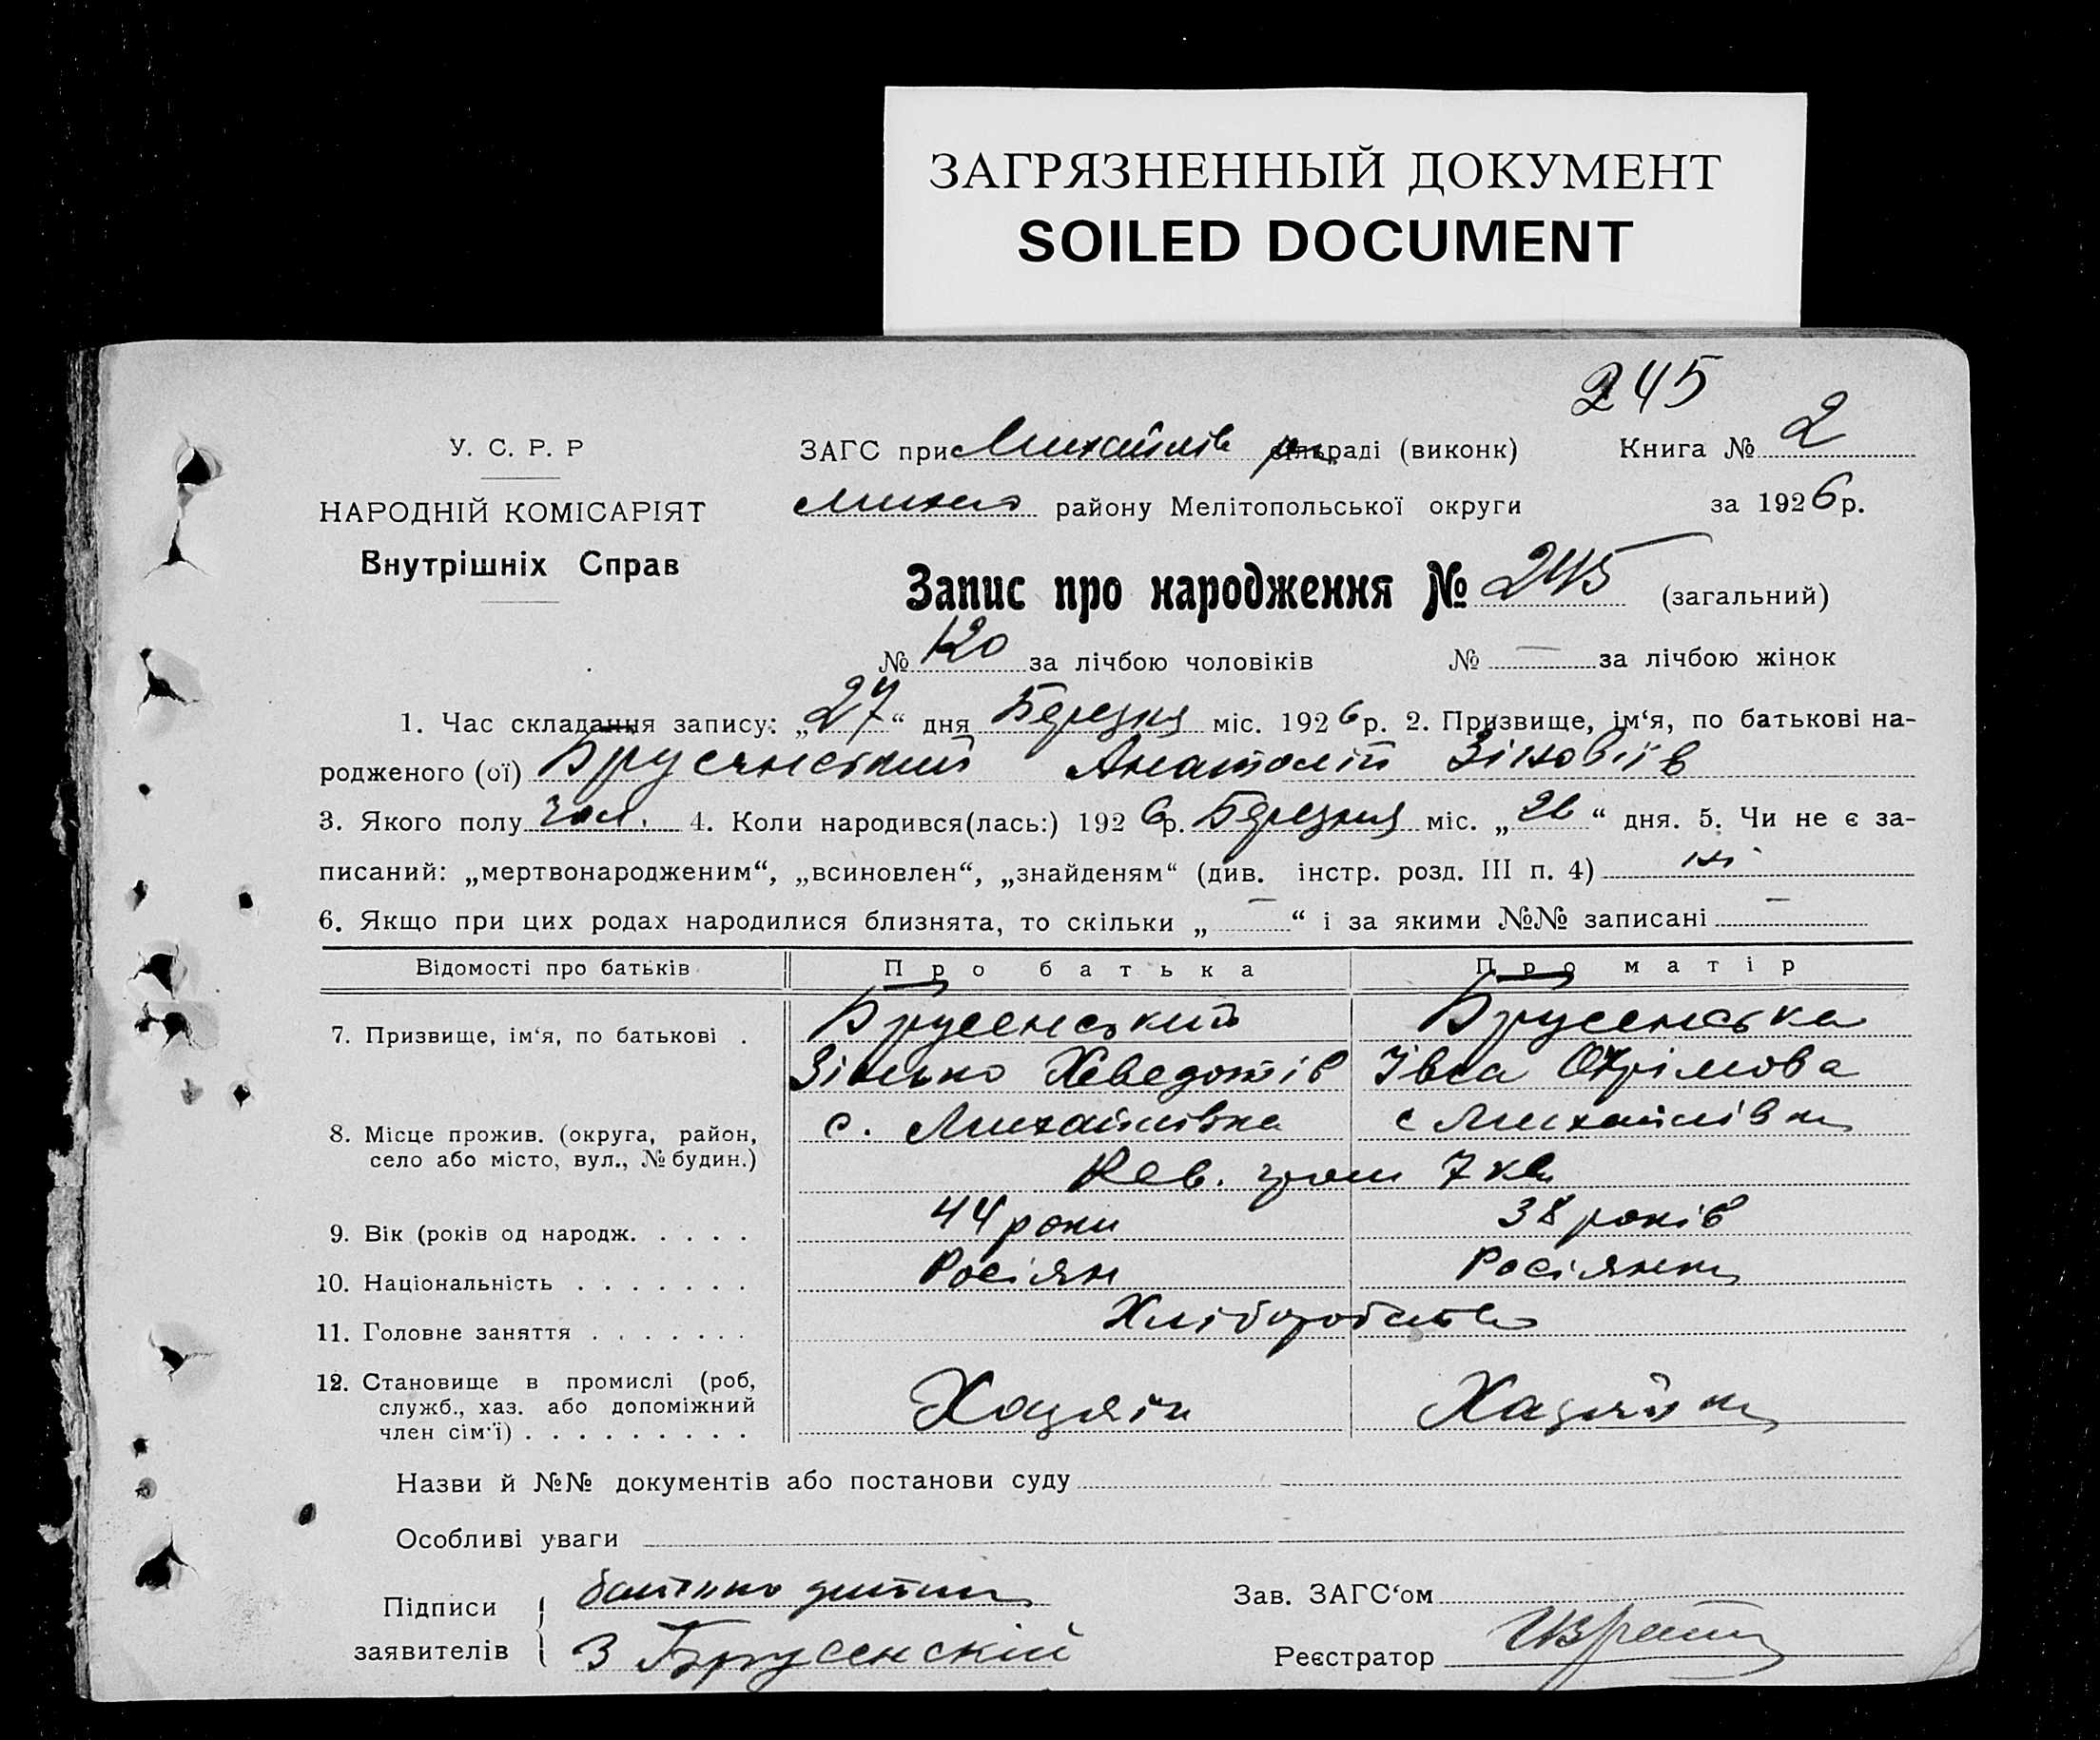 ЗАГРЯЗНЕННЫЙ ДОКУМЕНТ
SOILED DOCUMENT
245
У. С. Р. Р
ЗАГС при Михайлів сільраді (виконк) Книга № 2
НАРОДНІЙ КОМІСАРІЯТ
району Мелітопольської округи за 1926 р.
Внутрішніх Справ
Запис про народження № 245 (загальний)
№ 120 за лічбою чоловіків № — за лічбою жінок
1. Час складання запису: „27“ дня Березня міс. 1926 р. 2. Призвище, ім‘я, по батькові на-
родженого (ої) Брусенський Анатолій Зіновіїв
3. Якого полу чол. 4. Коли народився(лась:) 1926 р. Березня міс. „26“ дня. 5. Чи не є за-
писаний: „мертвонародженим“, „всиновлен“, „знайденям“ (див. інстр. розд. III п. 4) ні
6. Якщо при цих родах народилися близнята, то скільки „—“ і за якими №№ записані —
Відомості про батьків Про батька Про матір
7. Призвище, ім‘я, по батькові . Брусенський Брусенська
Зінько Хеведотів Івга Охрімова
8. Місце прожив. (округа, район, с. Михайлівка с Михайлівка
село або місто, вул., № будин.) Рев. 7 кв
9. Вік (років од народж. . . . . 44 роки 38 років
10. Національність . . . . . . . Росіян Росіянка
11. Головне заняття . . . . . . . Хліборобство
12. Становище в промислі (роб,
служб., хаз. або допоміжний Хазяїн Хазяйка
член сім‘ї) . . . . . . . . .
Назви й №№ документів або постанови суду
Особливі уваги
Підписи батько дитини Зав. ЗАГС‘ом
заявителів З Брусенскій Реєстратор